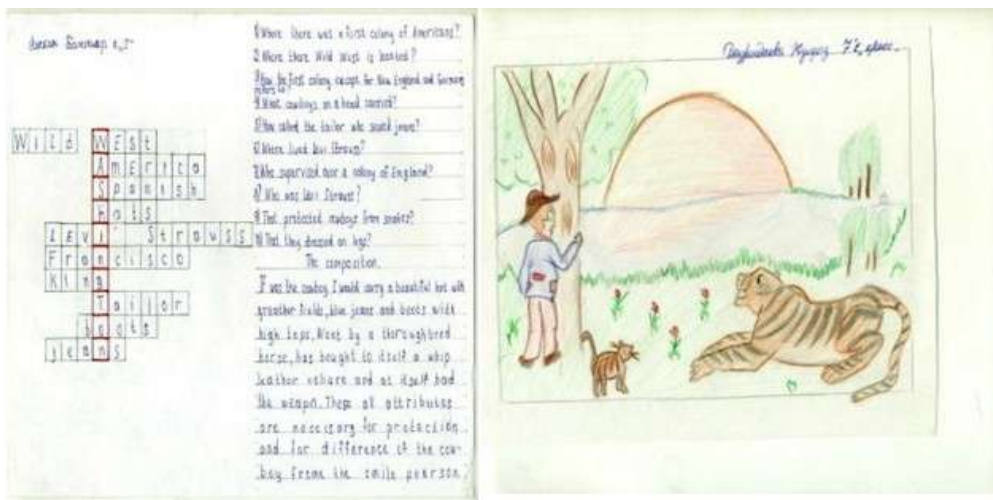 Wild West
America
Spanish
hats
Levi Strauss
Francisco
King
Tailor
boots
jeans
1) Where there was a first colony of Americans?
2) Where there Wild West is located?
3) How the first colony except for New England and Germany
4) What cowboys on a head carried?
5) How called the tailor who sewed jeans?
6) Where lived Levi Strauss?
7) Who supervised over a colony of England?
8) Who was Levi Strauss?
9) That protected cowboys from snakes?
10) That they dressed on legs?
The composition.
If was the cowboy, I would carry a beautiful hat with
fields, blue jeans and boots with
high tops. Went by a thoroughbred
horse, has bought to itself a whip
leather and at itself had
the weapon. These all attributes
are necissory for protection
and for difference of the cow-
boy frome the smile pearson.
7"б" класс